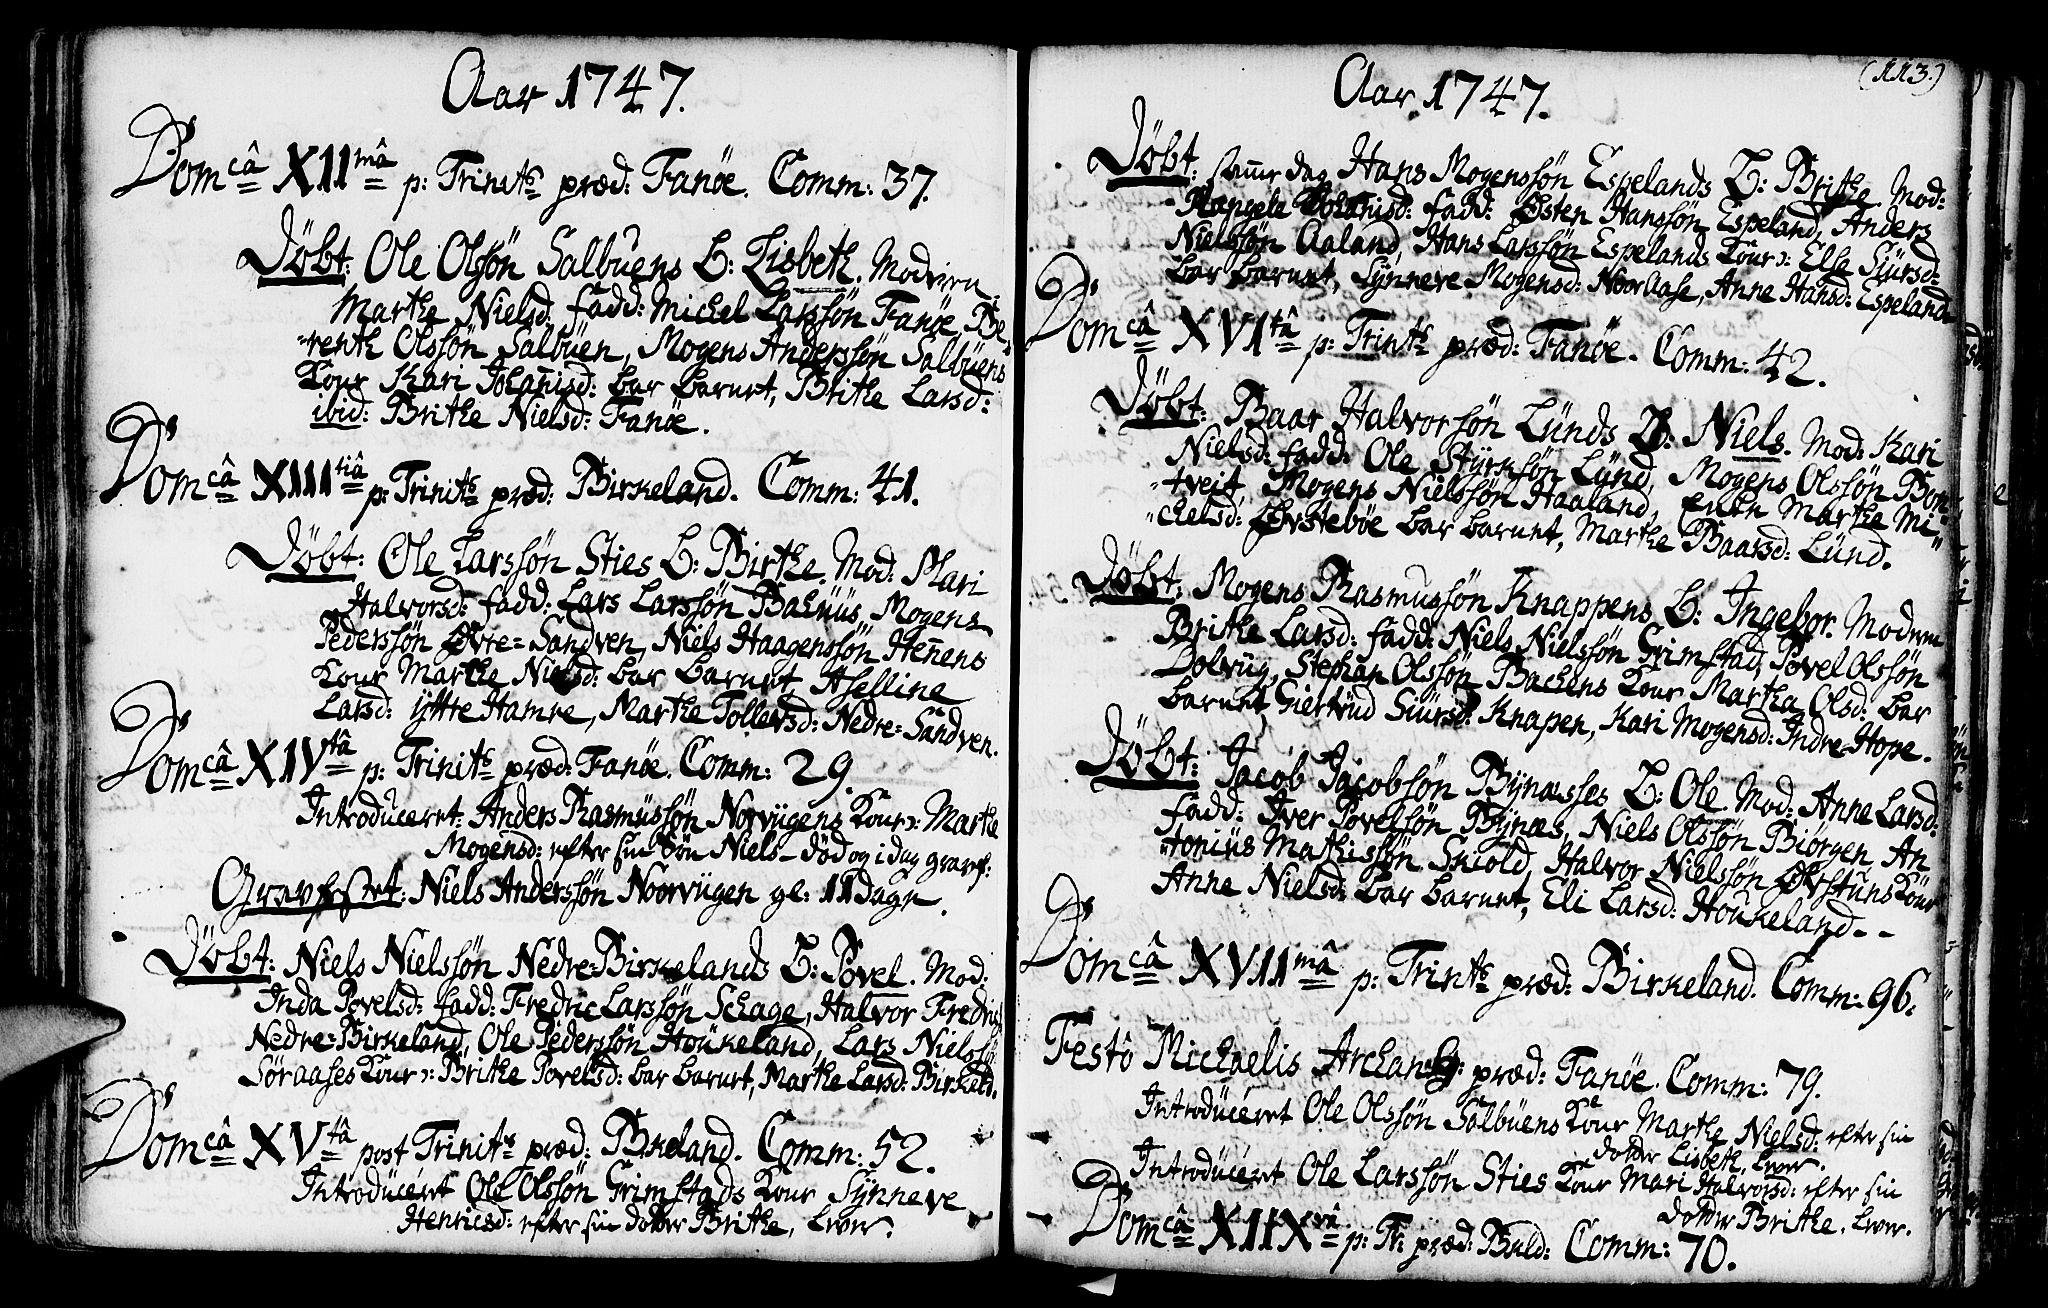 Aar 1747.
Domcâ XIImâ p: Trinits præd: Fanöe. Comm: 37.
Döbt: Ole Olsön Salbuens B: Lisbeth. Modren
Marthe Nielsd: fadd: Michel Larssön Fanöe, Be„
„renth Olssön Salbüen, Mogens Anderssön Salbüens
Kone Kari Johañisd: bar barnet, Brithe Larsd:
ibid: Brithe Nielsd: Fanöe.
Domcâ XIIItiâ p: Trinits præd: Birkeland. Comm: 41.
Döbt: Ole Larssön Sties B: Birthe. Mod: Mari
Halvorsd: fadd: Lars Larssön Bahuus, Mogens
Pederssön Øvre=Sandven, Niels Haagenssön Heñens
Kone Marthe Nielsd: bar barnet Aselline
Larsd: ÿttre Hamre, Marthe Tollevsd: Nedre=Sandven.
Domcâ XIVtâ p: Trinits præd: Fanöe. Comm: 29.
Introduceret: Anders Rasmüssön Norvügens Kone: Marthe
Mogensd: efter sin Sön Niels – död og i dag gravf:
Gravfæstet: Niels Anderssön Noorvügen gl: 11 Dage.
Döbt: Niels Nielssön Nedre=Birkelands B: Povel. Mod:
Inda Povelsd: fadd: Fredric Larssön Schage, Halvor Fredrics:
Nedre=Birkeland, Ole Pederssön Houkeland, Lars Nielssön
Söraases Kone: Brithe Povelsd: bar barnet, Marthe Larsd: Birkeld.
Domcâ XVtâ post Trinits præd: Birkeland. Comm: 52.
Introducéret Ole Olssön Grimstads Kone Sÿnneve
Henricsd: efter sin dotter Brithe, lever.
(113.)
Aar 1747.
Döbt: samme dag Hans Mogenssön Espelands B: Brithe Mod:
Rangele Johañisd: fadd: Østen Hanssön Espeland, Anders
Nielssön Aaland, Hans Larssön Espelands Kone: Else Siursd:
bar barnet, Sÿnneve Mogensd: Noordaase, Anne Hansd: Espeland
Domcâ XVItâ p: Trinits præd: Fanöe. Comm: 42.
Döbt: Baar Halvorsön Lünds B: Niels. Mod: Kari
Nielsd: fadd: Ole Stÿrksön Lünd, Mogens Olssön Bon„
„tveit, Mogens Nielssön Haaland, Enken Marthe Mi„
„chelsd: Øvstebøe bar barnet, Marthe Baarsd: Lünd.
Döbt: Mogens Rasmussön Knappens B: Ingebor. Modren
Brithe Larsd: fadd: Niels Nielssön Grimstad, Povel Olssön
Dolvüg, Stephan Olssön Backens Kone Martha Olsd: bar
barnet, Giertrüd Siursd: Knapen, Kari Mogensd: Indre=Hope.
Döbt: Jacob Jacobsön Bÿnæsses B: Ole. Mod: Anne Larsd:
fadd: Iver Povelsön Bÿnæs, Niels Olssön Biörgen, An„
„tonius Mathissön Sniold, Halvor Nielssön Øvstüns Kone
Anne Nielsd: bar barnet, Eli Larsd: Houkeland--
Domcâ XVIImâ p: Trinits præd: Birkeland. Comm: 96.
Festô Michaelis Archang: præd: Fanöe. Comm: 79.
Introducéret Ole Olssön Salbüens Kone Marthe Nielsd: efter sin
dotter Lisbeth, lever.
Introducéret Ole Larssön Sties Kone Mari Halvorsd: efter sin
dotter Brithe, lever.
Domcâ XIIXvâ p: Tr: præd: Birld: Comm: 70.